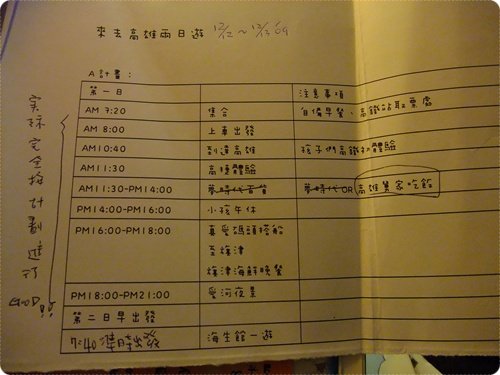 來去高雄兩日遊 12/12~12/13 '09
A計畫:
第一日 注意事項
AM 7:20 集合 自備早餐、高鐵站取票處
AM 8:00 上車出發
AM10:40 到達高雄 孩子們高鐵初體驗
AM11:30 高捷體驗
AM11:30-PM14:00 夢時代百貨 夢時代 OR 高雄舅家吃飯
PM14:00-PM16:00 小孩午休
PM16:00-PM18:00 真愛碼頭搭船
至旗津
旗津海鮮晚餐
PM18:00-PM21:00 愛河夜景
第二日早出發
7:40 準時出發 海生館一遊
實際完全按計劃進行
GOOD!!